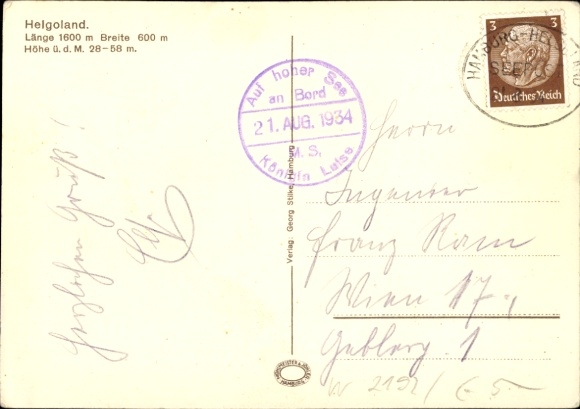 Helgoland.
Länge 1600 m Breite 600 m
Höhe ü. d. M. 28-58 m.
3 3
Deutsches Reich
HAMBURG-HELGOLAND
SEEPOST
Auf hoher See
an Bord
21. AUG. 1934
M.S.
Königin Luise
Verlag Georg Stilke, Hamburg
Herrn
Ingenieur
Franz Ram
Wien 17.,
Geblerg. 1
Herzlichen Gruß!
HAMBURG
W 2192/ € 5-